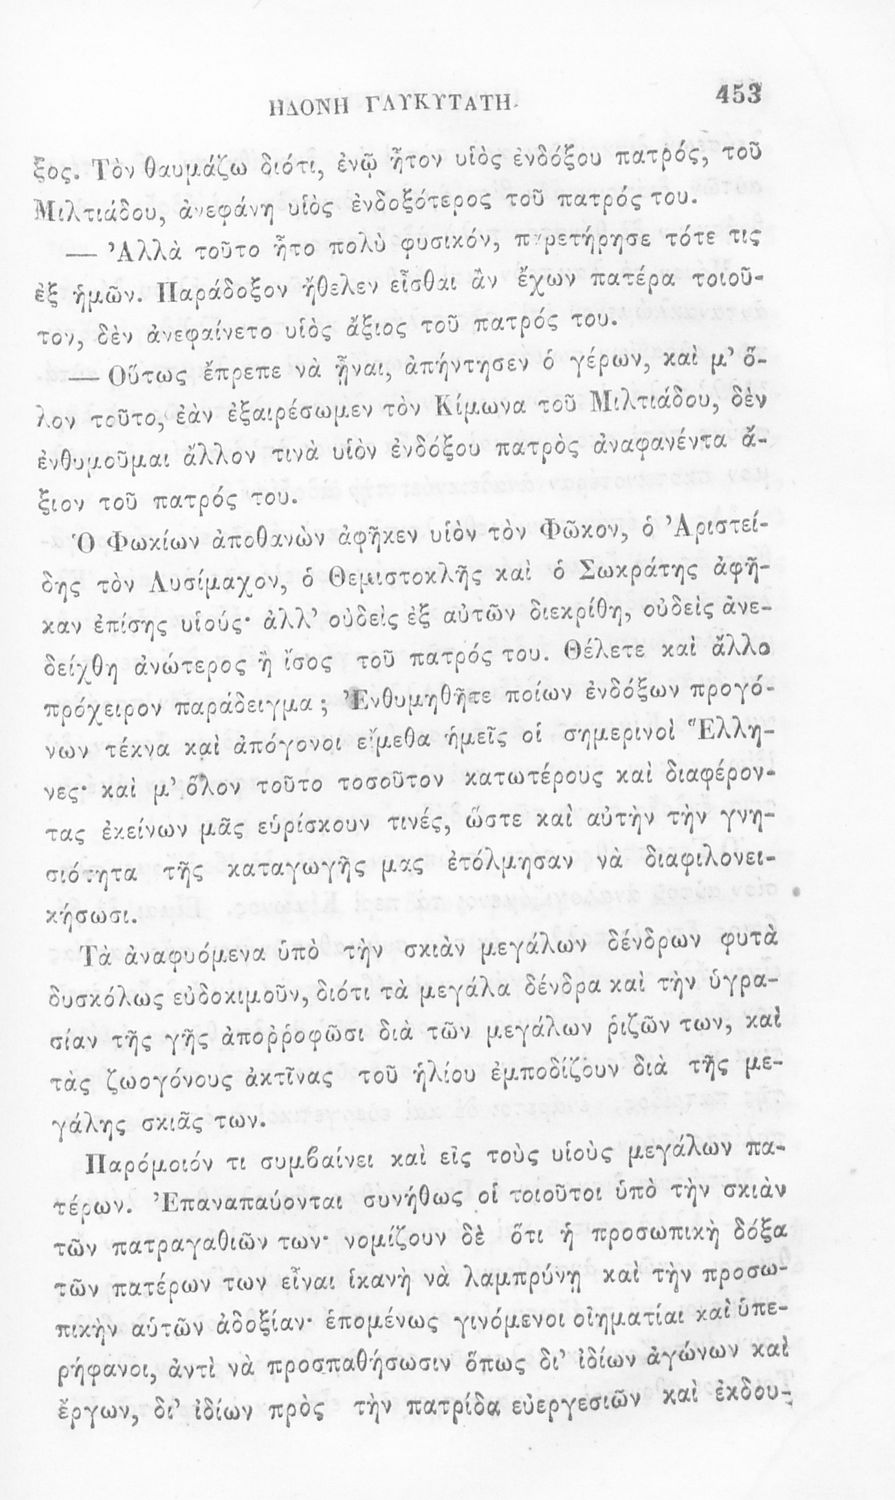 ΗΔΟΝΗ ΓΛΥΚΥΤΑΤΗ. 453
ξος. Τὸν θαυμάζω διότι, ἐνῷ ἦτον υἱὸς ἐνδόξου πατρός, τοῦ
Μιλτιάδου, ἀνεφάνη υἱὸς ἐνδοξότερος τοῦ πατρός του.
— Ἀλλὰ τοῦτο ἦτο πολὺ φυσικόν, παρετήρησε τότε τις
ἐξ ἡμῶν. Παράδοξον ἤθελεν εἶσθαι ἂν ἔχων πατέρα τοιοῦ-
τον, δὲν ἀνεφαίνετο υἱὸς ἄξιος τοῦ πατρός του.
— Οὕτως ἔπρεπε νὰ ᾖναι, ἀπήντησεν ὁ γέρων, καὶ μ’ ὅ-
λον τοῦτο, ἐὰν ἐξαιρέσωμεν τὸν Κίμωνα τοῦ Μιλτιάδου, δὲν
ἐνθυμοῦμαι ἄλλον τινὰ υἱὸν ἐνδόξου πατρὸς ἀναφανέντα ἄ-
ξιον τοῦ πατρός του.
Ὁ Φωκίων ἀποθανὼν ἀφῆκεν υἱὸν τὸν Φῶκον, ὁ Ἀριστεί-
δης τὸν Λυσίμαχον, ὁ Θεμιστοκλῆς καὶ ὁ Σωκράτης ἀφῆ-
καν ἐπίσης υἱούς· ἀλλ’ οὐδεὶς ἐξ αὐτῶν διεκρίθη, οὐδεὶς ἀνε-
δείχθη ἀνώτερος ἢ ἴσος τοῦ πατρός του. Θέλετε καὶ ἄλλο
πρόχειρον παράδειγμα ; Ἐνθυμηθῆτε ποίων ἐνδόξων προγό-
νων τέκνα καὶ ἀπόγονοι εἴμεθα ἡμεῖς οἱ σημερινοὶ Ἕλλη-
νες· καὶ μ’ ὅλον τοῦτο τοσοῦτον κατωτέρους καὶ διαφέρον-
τας ἐκείνων μᾶς εὑρίσκουν τινές, ὥστε καὶ αὐτὴν τὴν γνη-
σιότητα τῆς καταγωγῆς μας ἐτόλμησαν νὰ διαφιλονει-
κήσωσι.
Τὰ ἀναφυόμενα ὑπὸ τὴν σκιὰν μεγάλων δένδρων φυτὰ
δυσκόλως εὐδοκιμοῦν, διότι τὰ μεγάλα δένδρα καὶ τὴν ὑγρα-
σίαν τῆς γῆς ἀποῤῥοφῶσι διὰ τῶν μεγάλων ῥιζῶν των, καὶ
τὰς ζωογόνους ἀκτῖνας τοῦ ἡλίου ἐμποδίζουν διὰ τῆς με-
γάλης σκιᾶς των.
Παρόμοιόν τι συμβαίνει καὶ εἰς τοὺς υἱοὺς μεγάλων πα-
τέρων. Ἐπαναπαύονται συνήθως οἱ τοιοῦτοι ὑπὸ τὴν σκιὰν
τῶν πατραγαθιῶν των· νομίζουν δὲ ὅτι ἡ προσωπικὴ δόξα
τῶν πατέρων των εἶναι ἱκανὴ νὰ λαμπρύνῃ καὶ τὴν προσω-
πικὴν αὑτῶν ἀδοξίαν· ἑπομένως γινόμενοι οἰηματίαι καὶ ὑπε-
ρήφανοι, ἀντὶ νὰ προσπαθήσωσιν ὅπως δι’ ἰδίων ἀγώνων καὶ
ἔργων, δι’ ἰδίων πρὸς τὴν πατρίδα εὐεργεσιῶν καὶ ἐκδου-